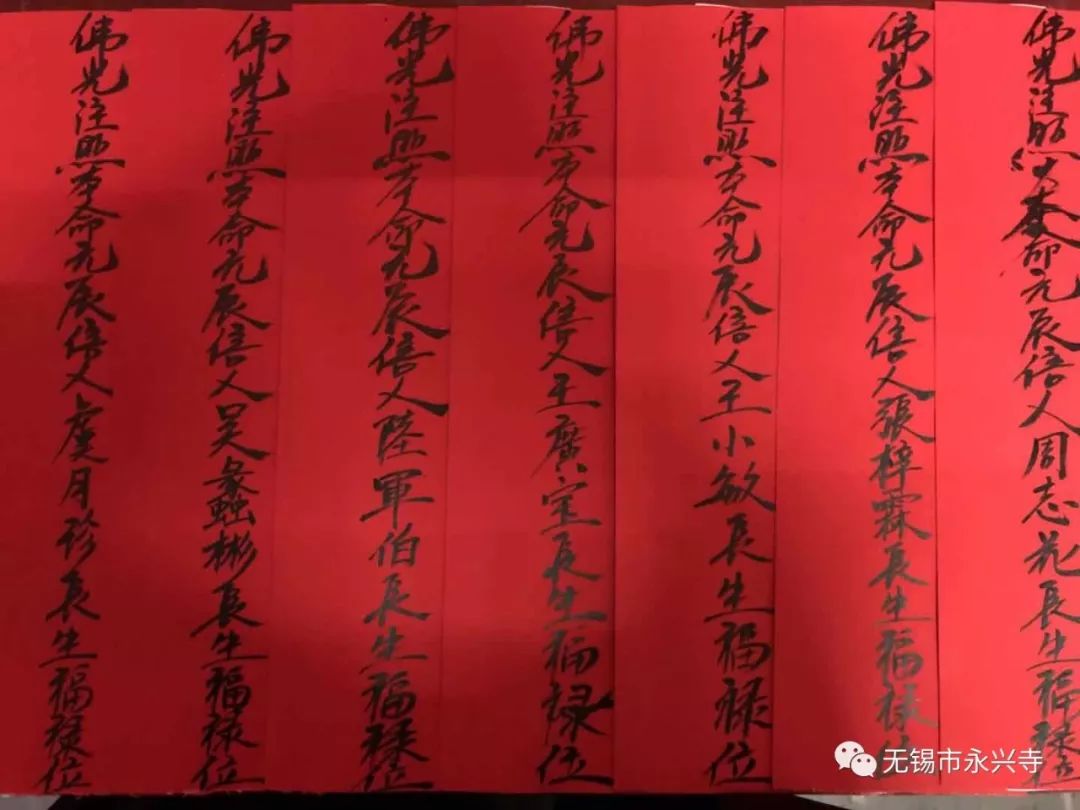 佛光注照本命元辰信人周志花長生福祿位
佛光注照本命元辰信人張梓霖長生福祿位
佛光注照本命元辰信人王小敏長生福祿位
佛光注照本命元辰信人王廣長生福祿位
佛光注照本命元辰信人陸軍伯長生福祿位
佛光注照本命元辰信人吴蠡彬長生福祿位
佛光注照本命元辰信人虞月珍長生福祿位
无锡市永兴寺